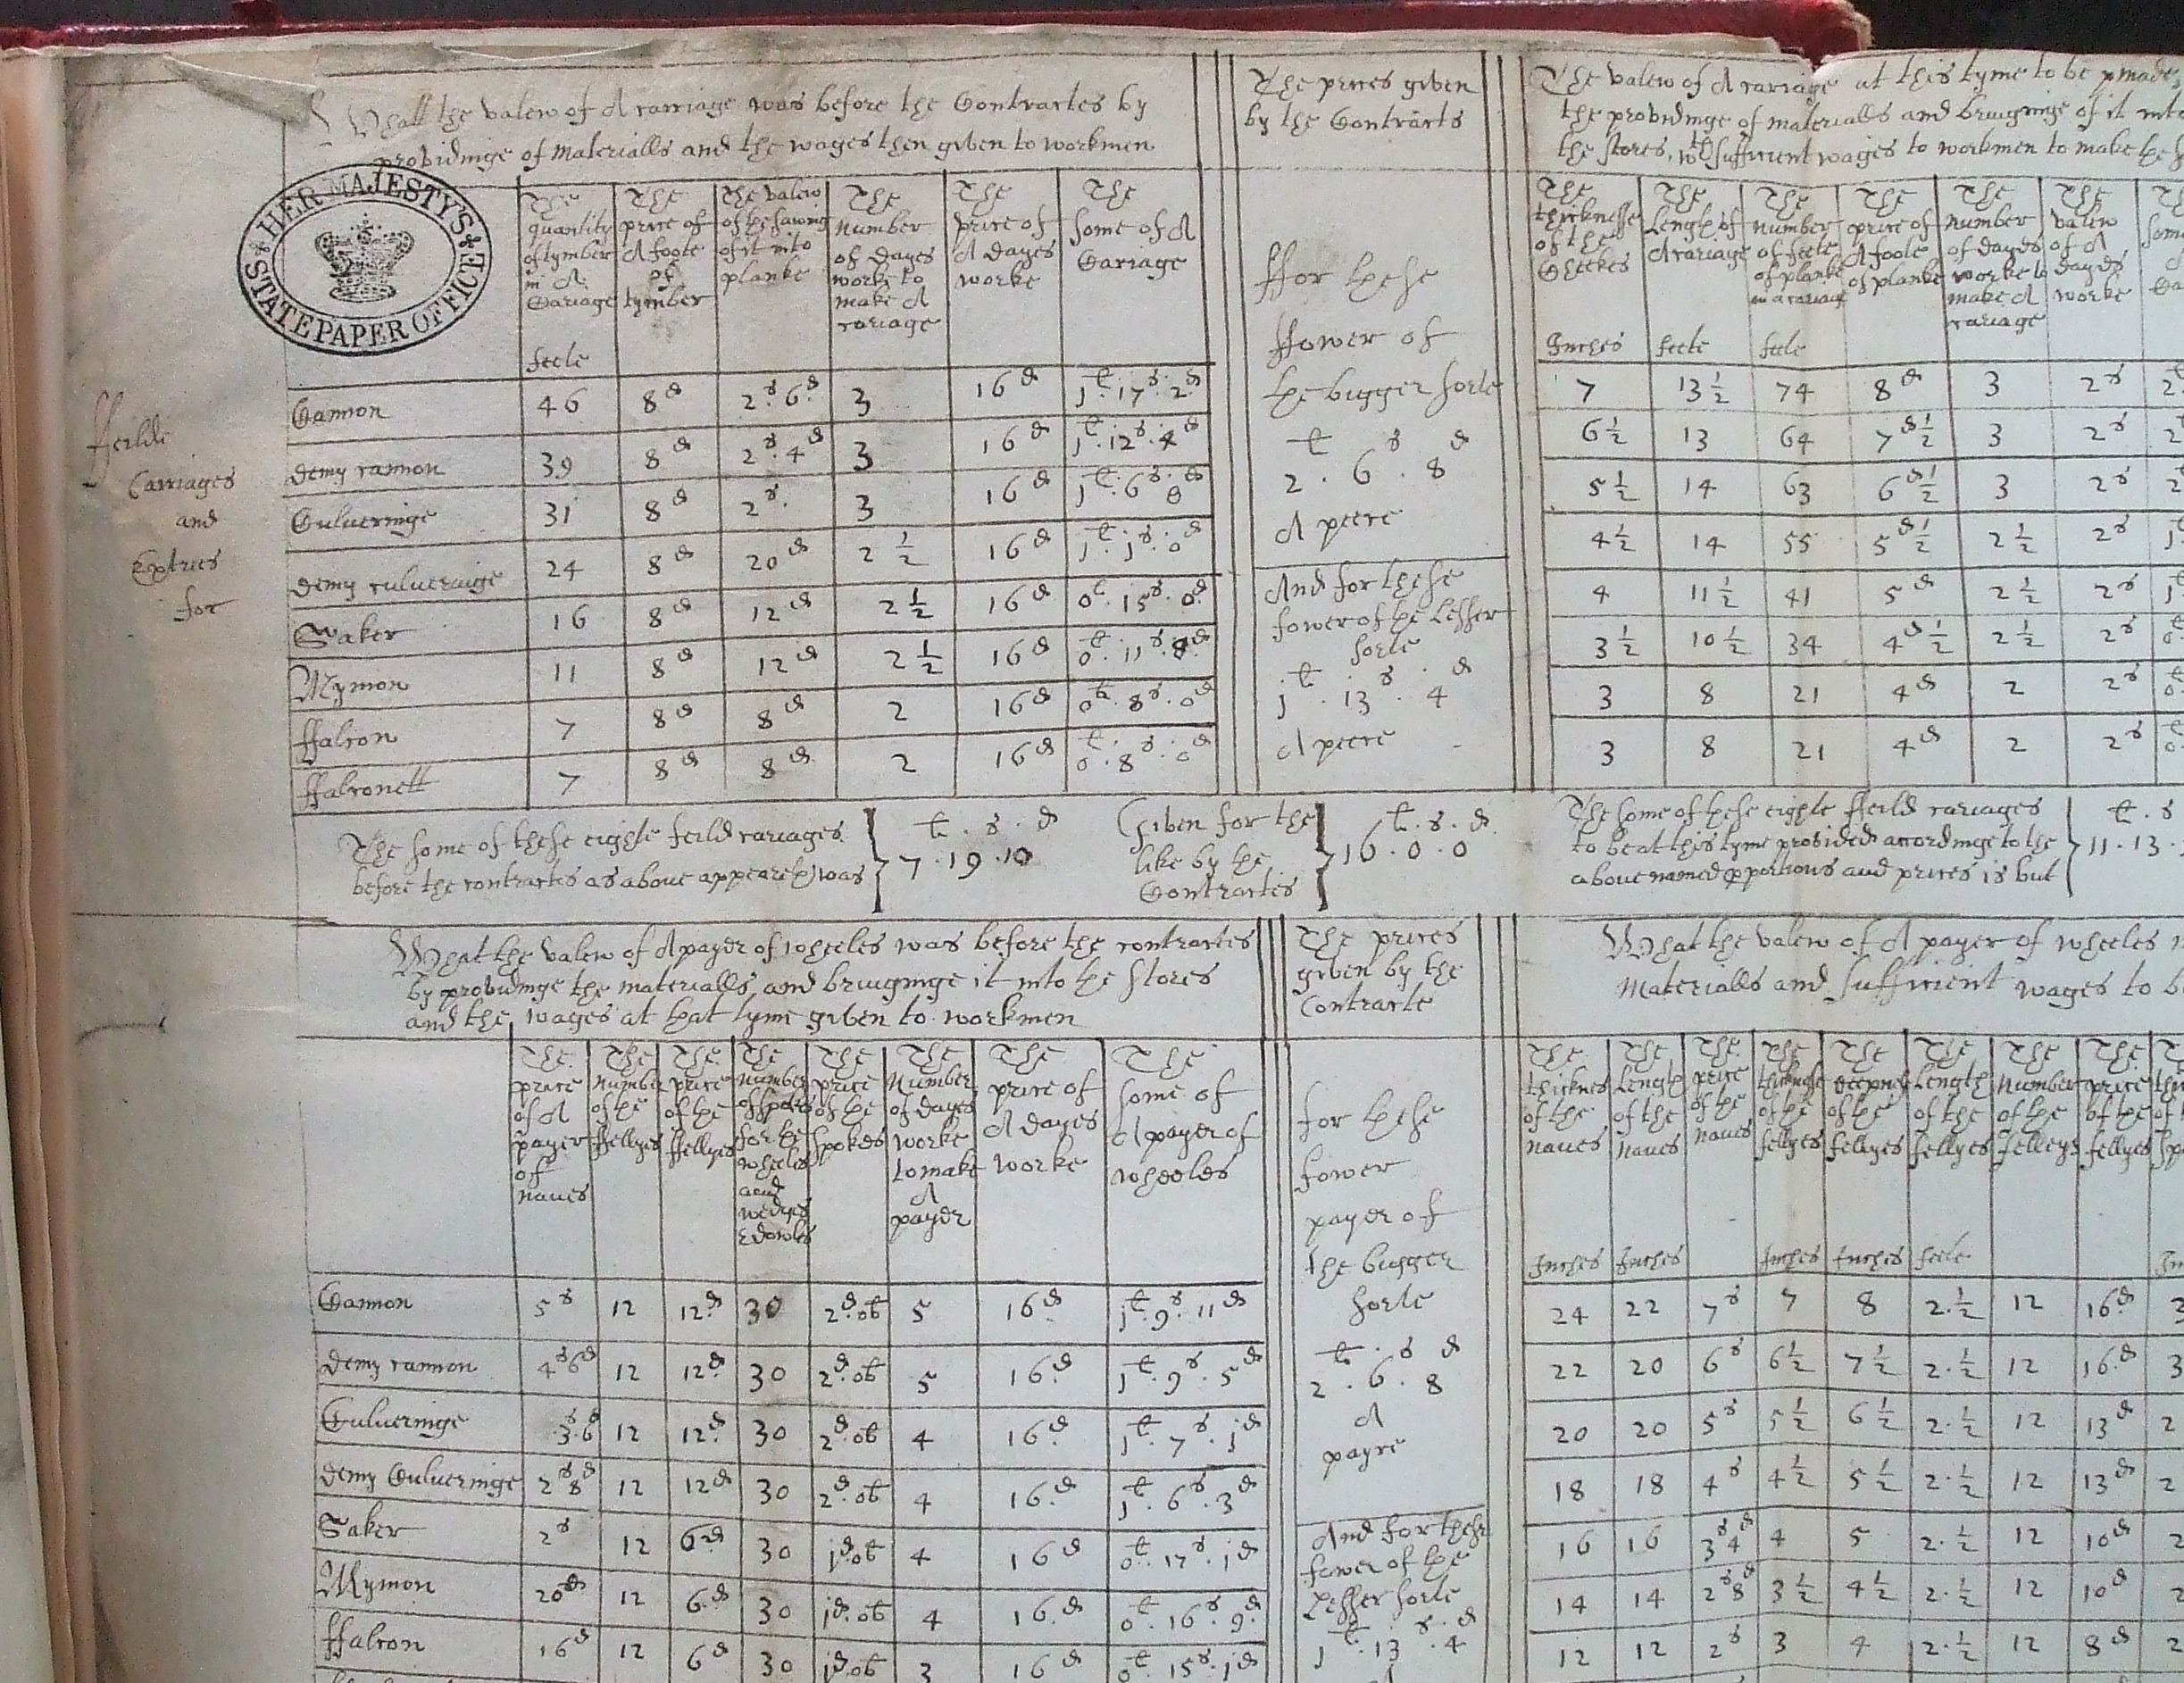 What the valew of A carriage was before the Contractes by
providinge of Materialls and the wages then given to workmen
The prices given
by the Contracts
The valew of A cariage at this tyme to be pmade,
the providinge of materialls and bringinge of it into
the stores, wth sufficient wages to workmen to make
HER MAJESTY'S
STATE PAPER OFFICE
The quantity of tymber in A Cariage
The price of A foote of tymber
The valew of the sawing of it into planke
The Number of dayes worke to make A cariage
The price of A dayes worke
The some of A Cariage
feete
The thicknesse of the Cheekes
The Length of A cariage
The number of feete of planke in a cariage
The price of A foote of planke
The number of dayes worke to make A cariage
The valew of A dayes worke
Inches feete feete
ffeilde
Carriages
and
Extries
for
Cannon 46 8d 2s.6d. 3 16d 1l.17s.2d
demy cannon 39 8d 2s.4d 3 16d 1l.12s.4d
Culveringe 31 8d 2s. 3 16d 1l.6s.8d
demy culveringe 24 8d 20d 2 1/2 16d 1l.1s.0d
Saker 16 8d 12d 2 1/2 16d 0l.15s.0d
Mymon 11 8d 12d 2 1/2 16d 0l.11s.8d
ffalcon 7 8d 8d 2 16d 0l.8s.0d
ffalconett 7 8d 8d 2 16d 0l.8s.0d
ffor these
ffower of
the bigger sorte
l s d
2 . 6 . 8
A peece
And for these
fower of the Lesser
sorte
l . s . d
1 . 13 . 4
A peece
7 13 1/2 74 8d 3 2s
6 1/2 13 64 7d 1/2 3 2s
5 1/2 14 63 6d 1/2 3 2s
4 1/2 14 55 5d 1/2 2 1/2 2s
4 11 1/2 41 5d 2 1/2 2s
3 1/2 10 1/2 34 4d 1/2 2 1/2 2s
3 8 21 4d 2 2s
3 8 21 4d 2 2s
The some of these eighte feild cariages
before the contractes as above appeareth was
l . s . d
7 . 19 . 10
Given for the
like by the
Contractes
l . s . d.
16 . 0 . 0
The some of these eighte ffeild cariages
to be at this tyme provided accordinge to the
above named pportions and prices is but
l . s
11 . 13 .
What the valew of A payer of wheeles was before the contractes
by providinge the materialls and bringinge it into the stores
and the wages at that tyme given to workmen
The prices
given by the
Contracte
What the valew of A payer of wheeles
Materialls and sufficient wages to
The price of A payer of naves
The Number of the ffellyes
The price of the ffellyes
The number of spokes for the wheeles and wedges & dowles
The price of the spokes
The Number of dayes worke to make A payer
The price of A dayes worke
The some of A payer of wheeles
The thicknes of the naves
The Length of the naves
The price of the naves
The thicknesse of the fellyes
The deepnes of the fellyes
The Length of the fellyes
The Number of the felleys
The price of the fellyes
Inches Inches Inches Inches feete
Cannon 5s 12 12d. 30 2d.ob 5 16d. 1l.9s.11d
Demy cannon 4s6d 12 12d. 30 2d.ob 5 16d. 1l.9s.5d
Culveringe 3s.6d 12 12d. 30 2d.ob 4 16d. 1l.7s.1d
Demy Culveringe 2s8d 12 12d 30 2d.ob 4 16.d 1l.6s.3d
Saker 2s 12 6d 30 1d.ob 4 16d 0l.17s.1d
Mymon 20d 12 6.d 30 1d.ob 4 16.d 0l.16s.9d.
ffalcon 16d 12 6d 30 1d.ob 3 16d 0l.15s.1d
for these
fower
payer of
the bigger
sorte
l . s d
2 . 6 . 8
A
payre
And for these
fower of the
Lesser sorte
l . s . d
1 . 13 . 4
24 22 7s 7 8 2.1/2 12 16d.
22 20 6s 6 1/2 7 1/2 2.1/2 12 16.d
20 20 5s 5 1/2 6 1/2 2.1/2 12 13d
18 18 4s 4 1/2 5 1/2 2.1/2 12 13d
16 16 3s4d 4 5 2.1/2 12 10d
14 14 2s8d 3 1/2 4 1/2 2.1/2 12 10d
12 12 2s 3 4 2.1/2 12 8d